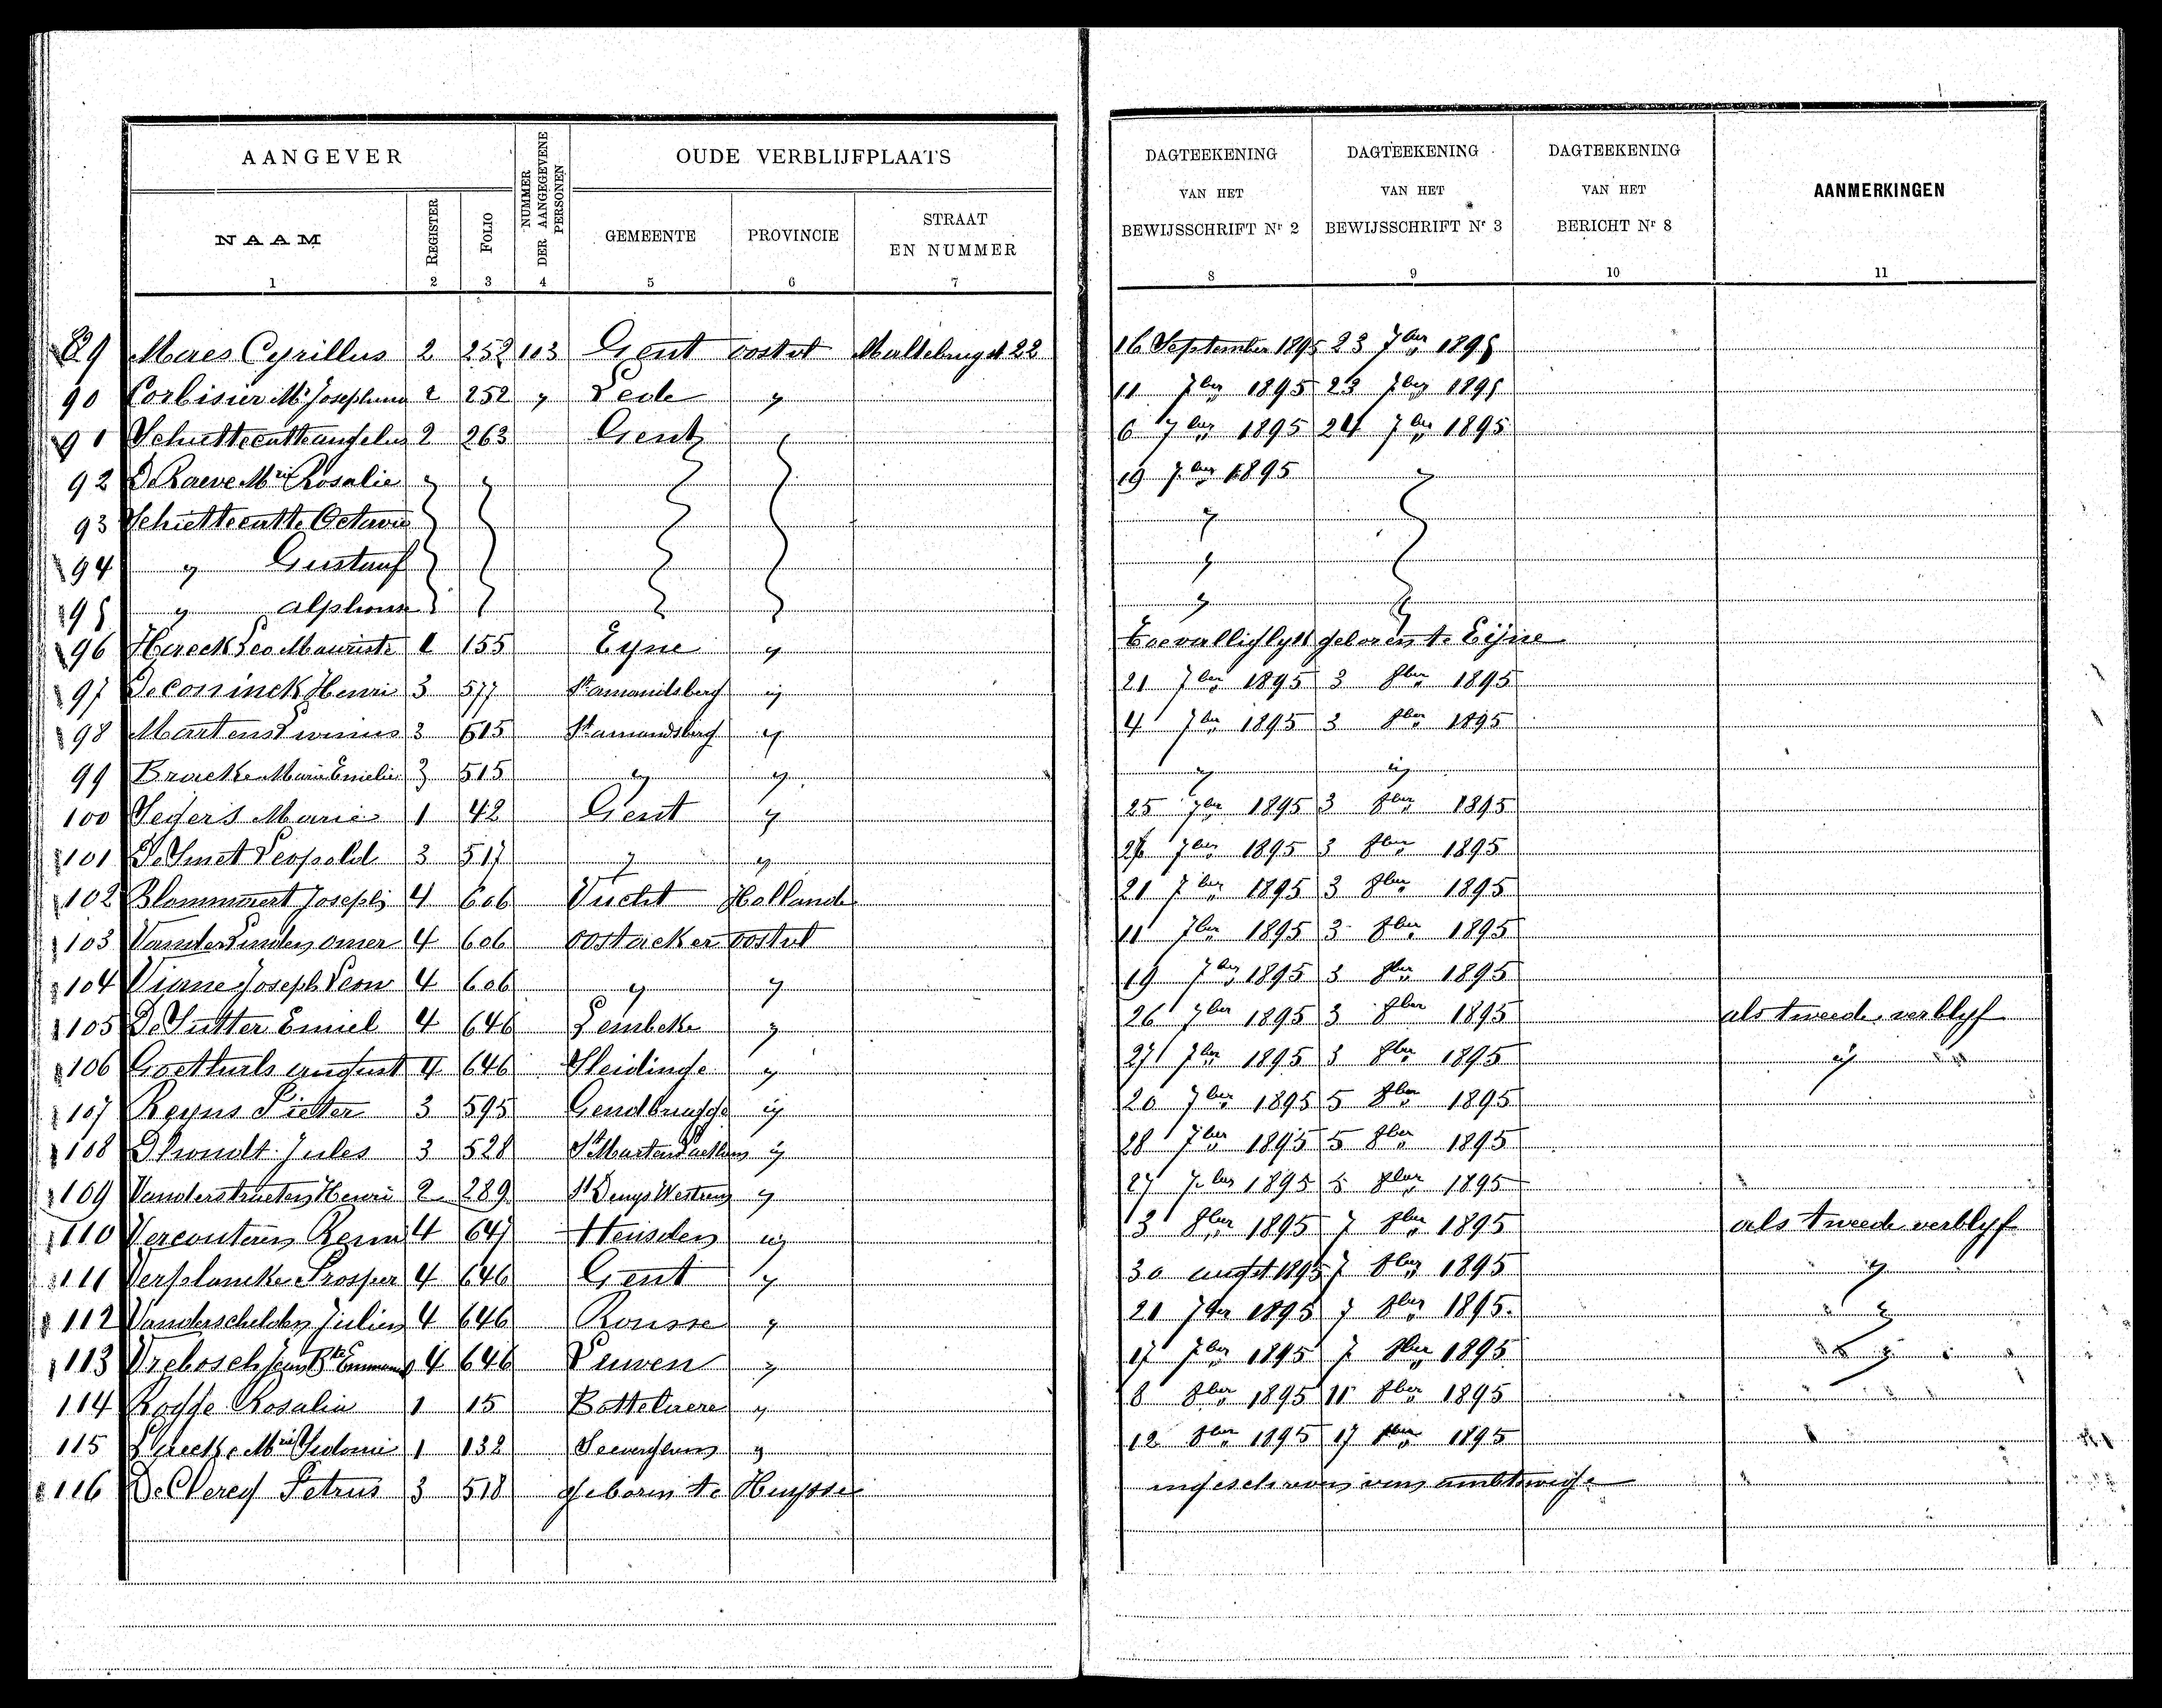 AANGEVER
NUMMER DER AANGEGEVENE PERSONEN
OUDE VERBLIJFPLAATS
DAGTEEKENING VAN HET BEWIJSSCHRIFT Nr 2
DAGTEEKENING VAN HET BEWIJSSCHRIFT Nr 3
DAGTEEKENING VAN HET BERICHT Nr 8
AANMERKINGEN
NAAM
REGISTER
FOLIO
GEMEENTE
PROVINCIE
STRAAT EN NUMMER
1 2 3 4 5 6 7 8 9 10 11
89 Maes Cyrillus 2 252 103 Gent oostvl 22 16 September 1895 23 7ber 1895
90 Corbisier 2 252 " Lede " 11 7ber 1895 23 7ber 1895
91 2 263 Gent 6 7ber 1895 24 7ber 1895
92 De Raeve Mrie Rosalie " " 19 7ber 1895 "
93 Schietteeatte Octavie "
94 " Gustaaf "
95 " alphons "
96 Haeck Leo 1 155 Eyne " Toevalliglyk geboren te Eijne
97 De Coninck Henri 3 577 St amandsberg " 21 7ber 1895 3 8ber 1895
98 Martens Livinus 3 515 St amandsberg " 4 7ber 1895 3 8ber 1895
99 Bracke Marie Emelie 3 515 " " " "
100 Segers Marie 1 42 Gent " 25 7ber 1895 3 8ber 1895
101 De Smet Leopold 3 517 " " 26 7ber 1895 3 8ber 1895
102 Blommaert Joseph 4 606 Vucht Holland 21 7ber 1895 3 8ber 1895
103 Vander Linden omer 4 606 oostacker oostvl 11 7ber 1895 3 8ber 1895
104 Viane Joseph Leon 4 606 " " 19 7ber 1895 3 8ber 1895
105 De Sutter Emiel 4 646 Lembeke " 26 7ber 1895 3 8ber 1895 als tweede verblyf
106 Goethals august 4 646 Sleidinge " 27 7ber 1895 3 8ber 1895 "
107 Reyns Pieter 3 595 Gendbrugge " 20 7ber 1895 5 8ber 1895
108 Dhondt Jules 3 528 St Martens Laethem " 28 7ber 1895 5 8ber 1895
109 Vanderstraeten Henri 2 289 St Denys Westrem " 27 7ber 1895 5 8ber 1895
110 Vercouteren Remi 4 647 Heusden " 3 8ber 1895 7 8ber 1895 als tweede verblyf
111 Verplancke Prosper 4 646 Gent " 30 augst 1895 7 8ber 1895 "
112 Vanderschelden Julien 4 646 Rousse " 21 7ber 1895 7 8ber 1895. "
113 Vrebosch Jean Bte 4 646 Leuven " 17 7ber 1895 7 8ber 1895 "
114 Rogge Rosalia 1 15 Bottelaere " 8 8ber 1895 11 8ber 1895
115 Mrie Sidonie 1 132 Seeverghem " 12 8ber 1895 17 8ber 1895
116 De Clercq Petrus 3 518 geboren te Huysse ingeschreven van ambtswege